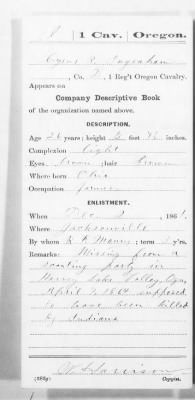 1 Cav. Oregon.
Cyrus R. Ingraham
, Co. D, 1 Reg't Oregon Cavalry.
Appears on
Company Descriptive Book
of the organization named above.
DESCRIPTION.
Age 26 years; height 5 feet inches.
Complexion light
Eyes brown; hair brown
Where born Ohio
Occupation farmer
ENLISTMENT.
When Dec 2, 1861.
Where Jacksonville
By whom R. F. Maury; term 3 y'rs.
Remarks: Missing from a
scouting party in
Harney Lake Valley, Ogn,
April 7, 1864 supposed
to have been killed
by Indians
Harrison
(383g) Copyist.